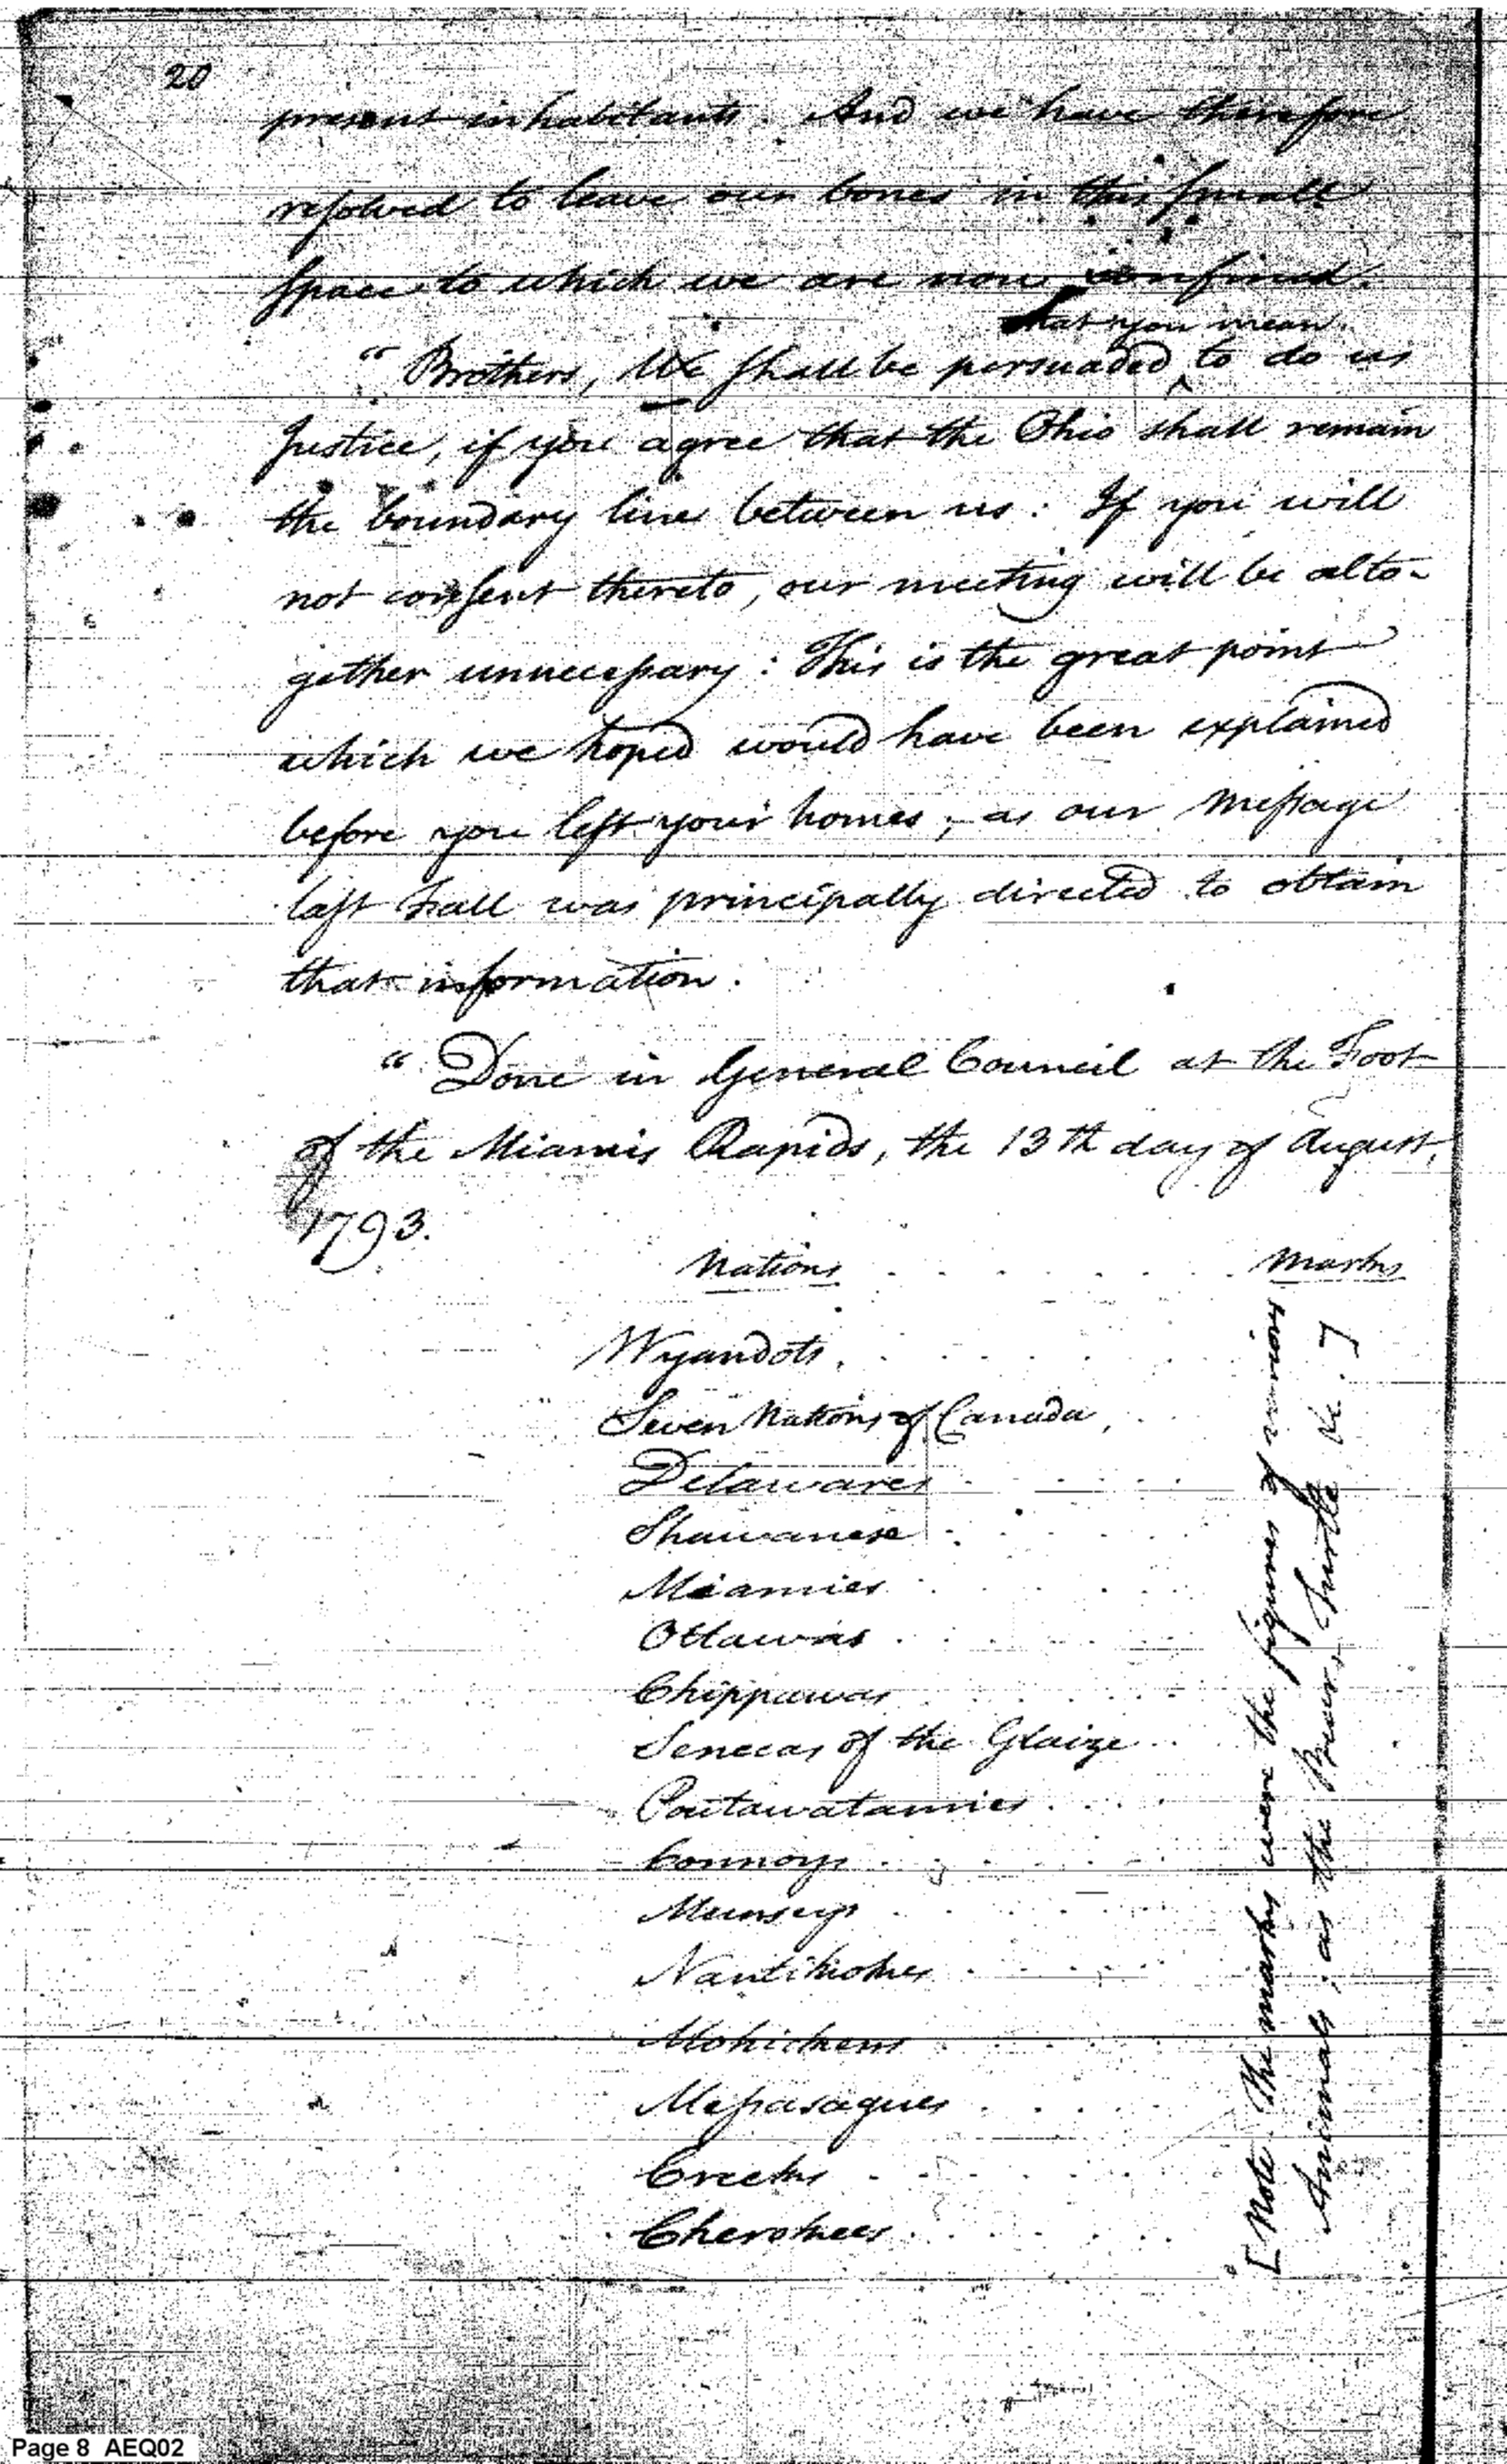 20
present inhabitants. And we have therefore
resolved to leave our bones in this small
space to which we are now confined.
that you mean
“Brothers, We shall be persuaded ‸ to do us
Justice, if you agree that the Ohio shall remain
the boundary line between us: If you will
not consent thereto, our meeting will be alto-
gether unnecessary: This is the great point
which we hoped would have been explained
before you left your homes; as our Message
last Fall was principally directed to obtain
that information.
“Done in General Council at the Foot
of the Miamis Rapids, the 13th day of August,
1793.
Nations . . . . . . . Marks
Wyandots
Seven Nations of Canada
Delawares
Shawanese
Miamies
Ottawas
Chippawas
Senecas of the Glaize
Poutawatamies
Connoys
Munseys
Nantikokes
Mohickens
Messasagues
Creeks
Cherokees
[Note. The marks were the figures of various
Animals; as the Bever, Turtle &c.]
Page 8 AEQ02